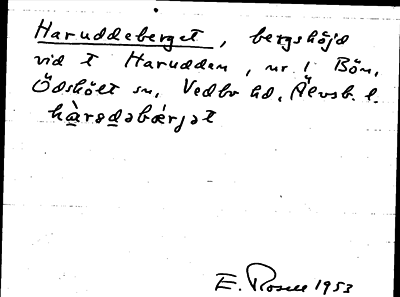 Haruddeberget, bergshöjd
vid t Harudden, nr 1 Bön,
Ödskölt sn, Vedbo hd, Älvsb. l.
E. Rosell 1953